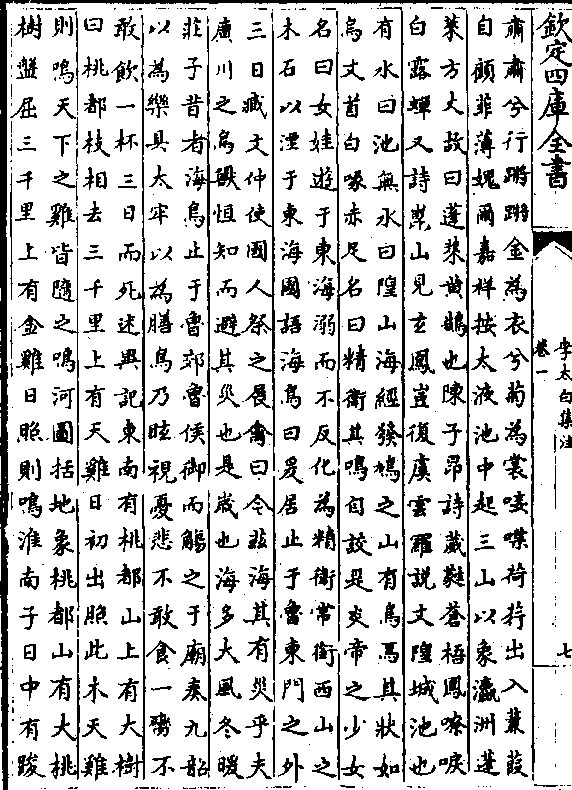 欽定四庫全書
李太白集注
卷一
七
肅肅兮行蹡蹡金為衣兮菊為裳唼喋荷荇出入蒹葭
自顧菲薄媿爾嘉祥按太液池中起三山以象瀛洲蓬
萊方丈故曰蓬萊黄鵠也陳子昂詩葳蕤蒼梧鳳嘹唳
白露蟬又詩崑山見玄鳳豈復虞雲羅說文隍城池也
有水曰池無水曰隍山海經發鳩之山有鳥焉其狀如
烏文首白喙赤足名曰精衛其鳴自詨是炎帝之少女
名曰女娃遊于東海溺而不反化為精衛常銜西山之
木石以湮于東海國語海鳥曰爰居止于魯東門之外
三日臧文仲使國人祭之展禽曰今茲海其有災乎夫
廣川之鳥獸恒知而避其災也是歲也海多大風冬暖
莊子昔者海鳥止于魯郊魯侯御而觴之于廟奏九韶
以為樂具太牢以為膳鳥乃眩視憂悲不敢食一臠不
敢飲一杯三日而死述異記東南有桃都山上有大樹
曰桃都枝相去三千里上有天雞日初出照此木天雞
則鳴天下之雞皆隨之鳴河圖括地象桃都山有大桃
樹盤屈三千里上有金雞日照則鳴淮南子日中有踆